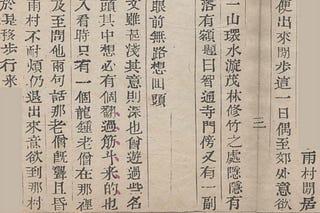 雨村閒居
便出來閒步這一日偶至郊外意欲
三
一山環水漩茂林修竹之處隱隱有
落有額題曰智通寺門傍又有一副
眼前無路想回頭
文雖是淺其意則深也曾遊過些名
頭其中想必有個翻過筋斗來的也
入看時只有一個龍鍾老僧在那裡
及至問他兩句話那老僧旣聾且昏
雨村不耐煩仍退出來意欲到那村
於是移步行來